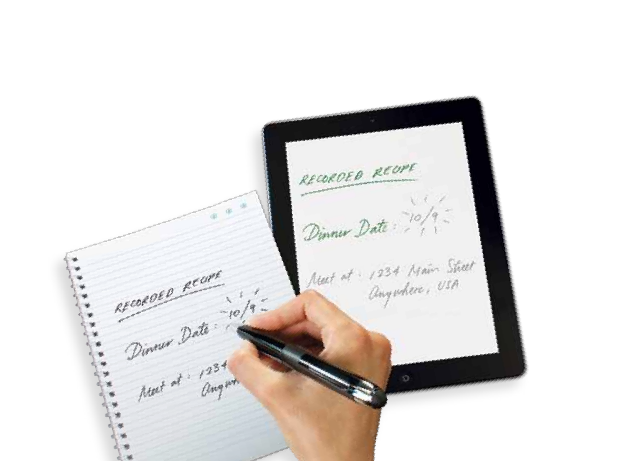 RECORDED RECIPE
Dinner Date: 10/9
Meet at: 1234
RECORDED RECIPE
Dinner Date: 10/9
Meet at: 1234 Main Street
Anywhere, USA